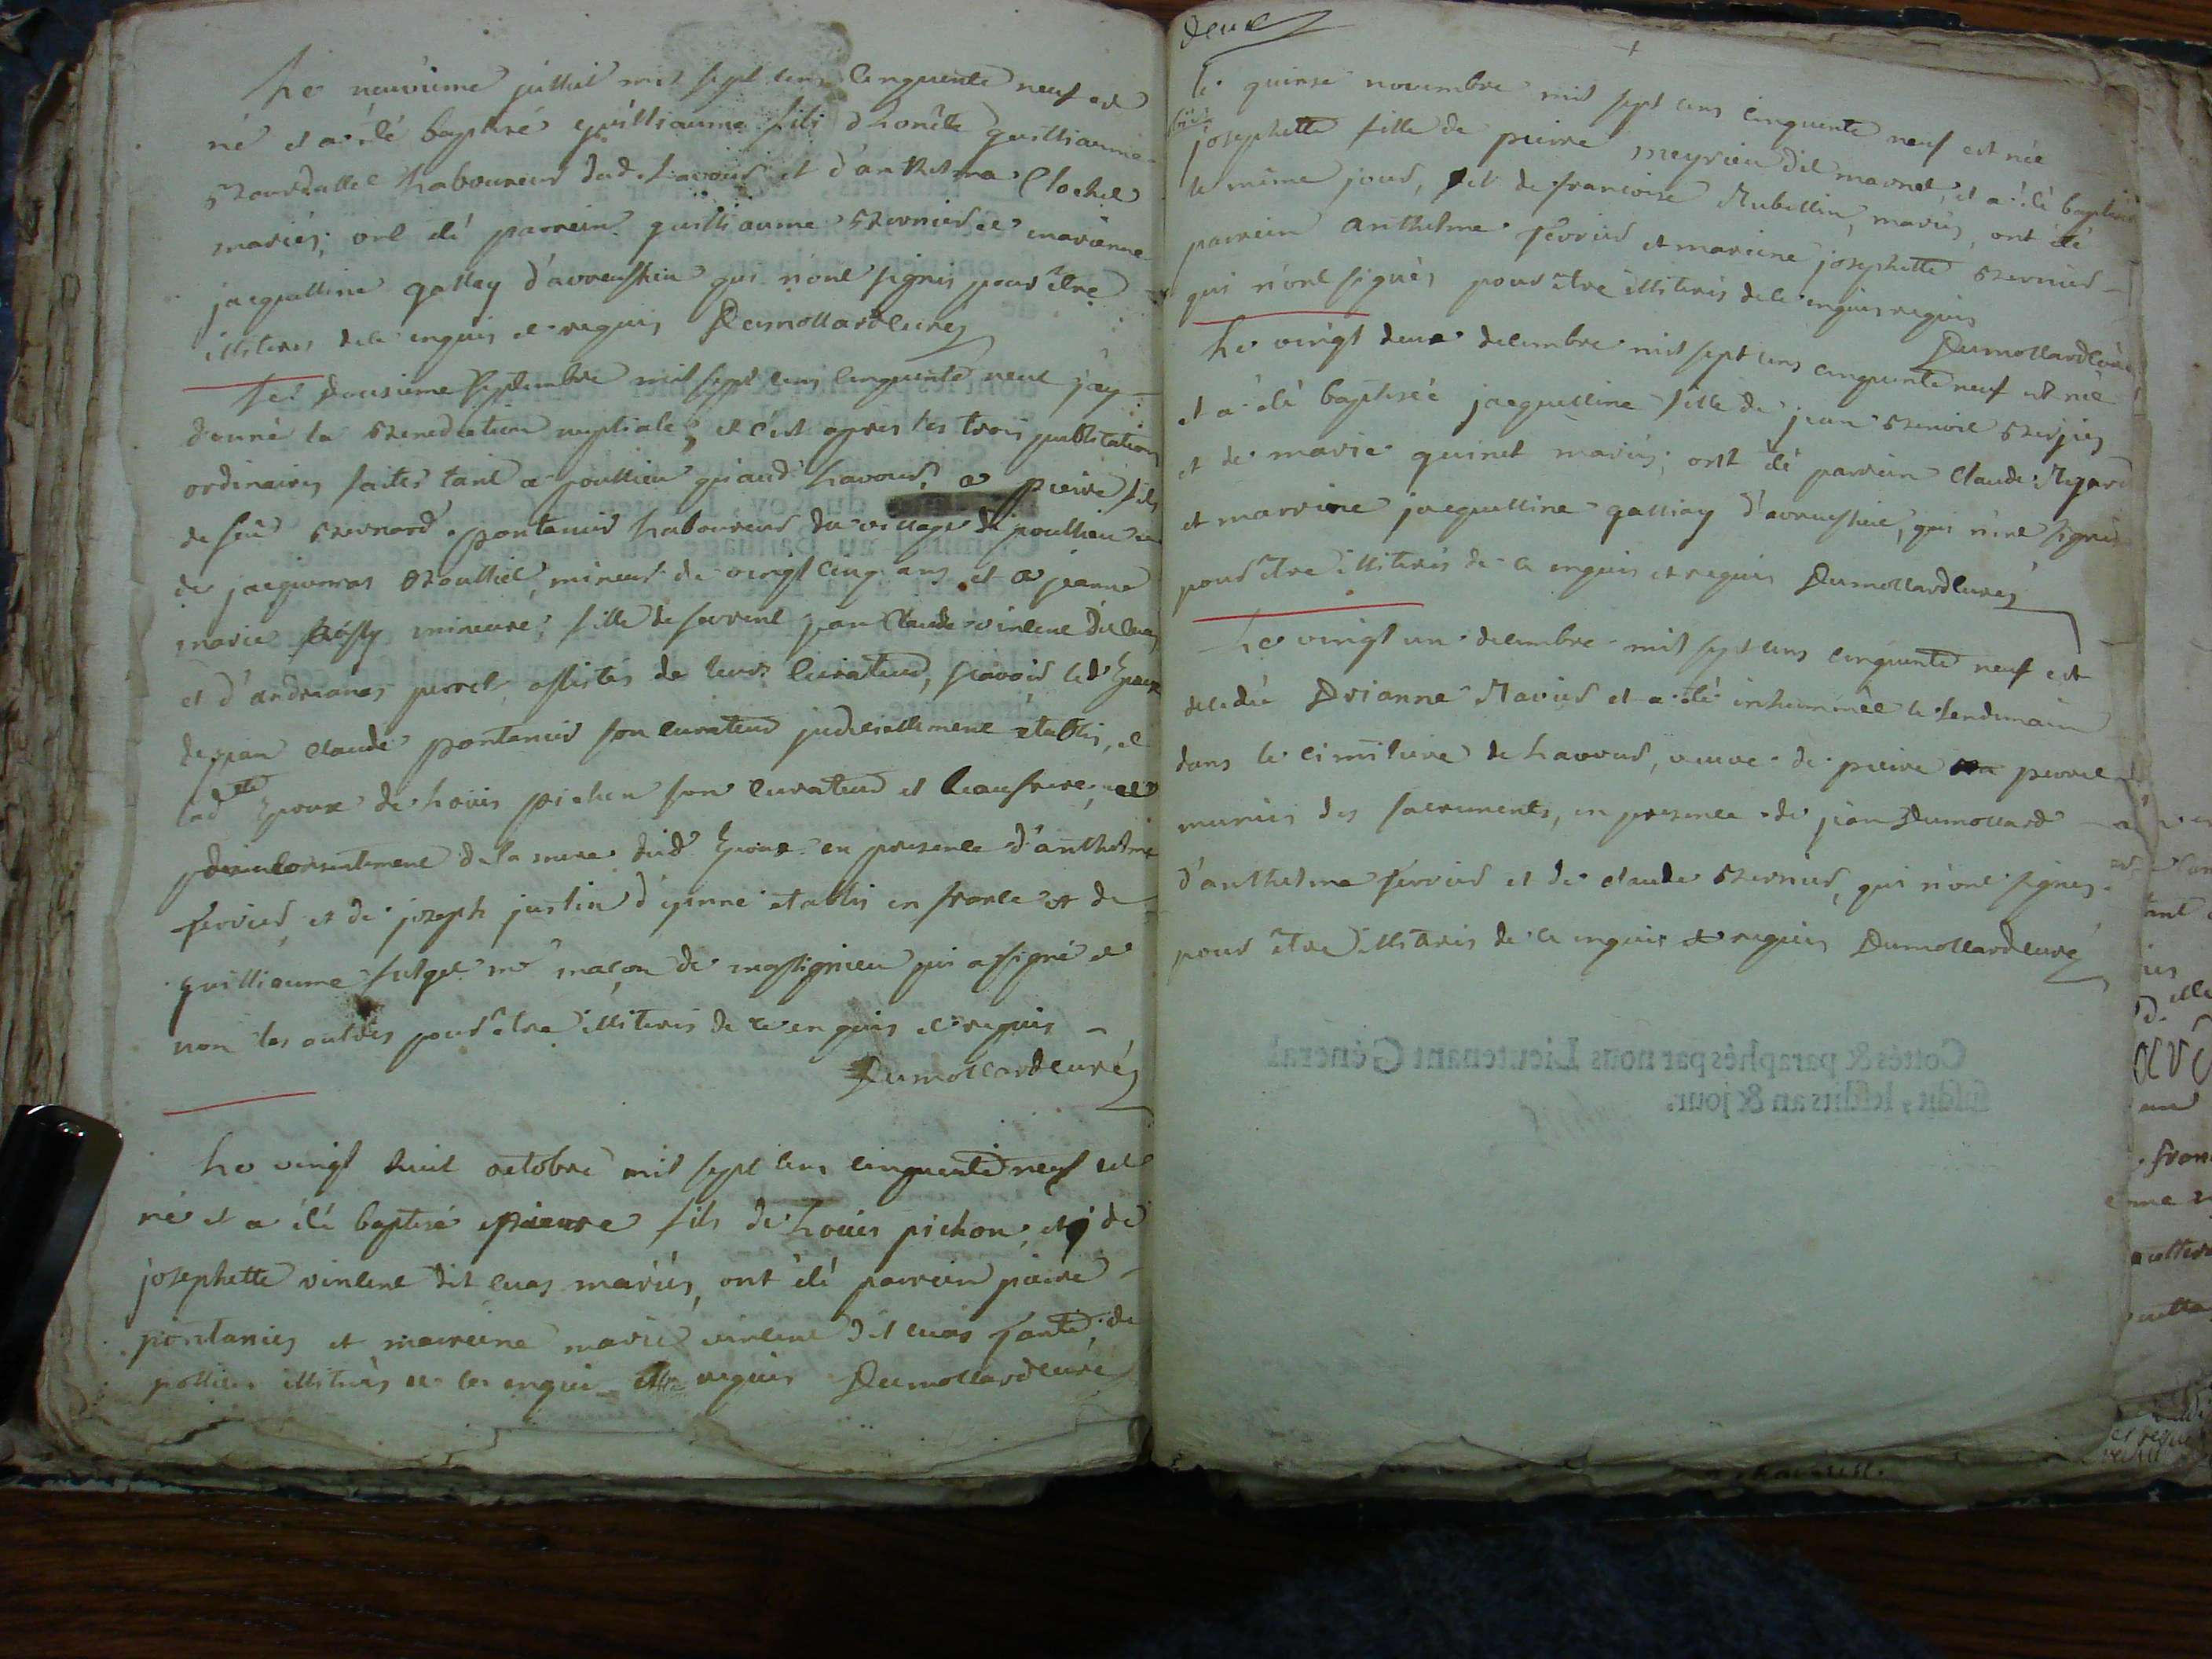 Le neuvieme juillet mil sept cens cinquente neuf est
né et a été baptisé guilliaume fils d'honête guilliaume
Bourdallet Laboureur dud. Lavour et d'anthelma Clochet
mariés; ont été parrein guilliaume Bernier et marienne
jaequelline galley d'avreissieu qui n'ont signés pour être
illiteres de ce enquis et requis Dumollard curé
Le douzieme septembre mil sept cens cinquente neuf j'ay
donné la Benediction nuptiale, et c'est apres les trois publications
ordinaires faites tant a poullieu qu'aud Lavour, a pierre fils
de feu Bernard pontanier Laboureur du village de poullieu et
de jaequemas Boulliet, mineur de vingt cinq ans et a jeanne
marie mineure, fille de feu jean Claude vincent dit cuaz
et d'andreanas perret, assistés de leurs curateurs, scavoir led. Epoux
de jean claude pontanier son curateur judiciellement etablis, et
ladte Epouse de Louis pichon son curateur et beaufrere, et
du consentement de la mere dud Epoux en presence d'anthelme
ferrier, et de joseph justin d'yenne etablis en france et de
guilliaume sulget me maçon de massignieu qui a signé et
non les autres pour être illiteres de ce enquis et requis
Dumollard curé
Le vingt huit octobre mil sept cens cinquente neuf est
né et a été baptisé pierre fils de Louis pichon, et de
josephette vincent dit cuaz mariés, ont été parrein pierre
pontanier et mareine marie vincent dit cuaz tante, de
pollieu illiterés de ce enquis et requis Dumollard curé
deux
Le quinze novembre mil sept cens cinquente neuf est née
josephette fille de pierre meyrieu dit mornet, et a été baptisée
le même jour, et de francoise Rubellin, mariés, ont été
parrein anthelme ferrier et mareine josephette Bernier
qui n'ont signés pour être illiterés de ce enquis requis
Dumollard curé
Le vingt deux decembre mil sept cens cinquente neuf est née
et a été baptisée jaequelline fille de jean Benoit Berjer
et de marie quinet mariés; ont été parrein Claude
et marrine jaequelline galliay d'avreissieu, qui n'ont signés
pour être illiterés de ce enquis et requis Dumollard curé
Le vingt un decembre mil sept cens cinquente neuf est
decedée Drianne Ravier et a été inhumée le lendemain
dans le cimitiere de Lavour, veuve de pierre perret
munies des sacrements, en presence de jean Dumollard
d'anthelme ferrier et de claude Bernier, qui n'ont signés
pour être illiterés de ce enquis et requis Dumollard curé
Cottés & paraphés par nous Lieutenant Géneral
susdit, lesdits an & jour.